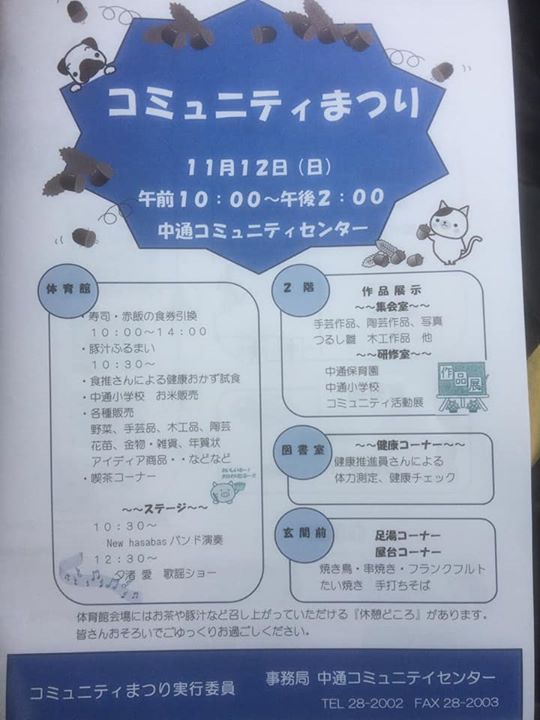 コミュニティまつり
11月12日(日)
午前10:00~午後2:00
中通コミュニティセンター
体育館
・寿司・赤飯の食券引換
10:00~14:00
・豚汁ふるまい
10:30~
・食推さんによる健康おかず試食
・中通小学校 お米販売
・各種販売
野菜、手芸品、木工品、陶芸
花苗、金物・雑貨、年賀状
アイディア商品・・などなど
・喫茶コーナー
~~ステージ~~
10:30~
New hasabasバンド演奏
12:30~
夕渚 愛 歌謡ショー
2階
作品展示
~~集会室~~
手芸作品、陶芸作品、写真
つるし雛 木工作品 他
~~研修室~~
中通保育園
中通小学校
コミュニティ活動展
作品展
図書室
~~健康コーナー~~
健康推進員さんによる
体力測定、健康チェック
玄関前
足湯コーナー
屋台コーナー
焼き鳥・串焼き・フランクフルト
たい焼き 手打ちそば
体育館会場にはお茶や豚汁など召し上がっていただける『休憩どころ』があります。
皆さんおそろいでごゆっくりお過ごしください。
コミュニティまつり実行委員
事務局 中通コミュニテイセンター
TEL 28-2002 FAX 28-2003